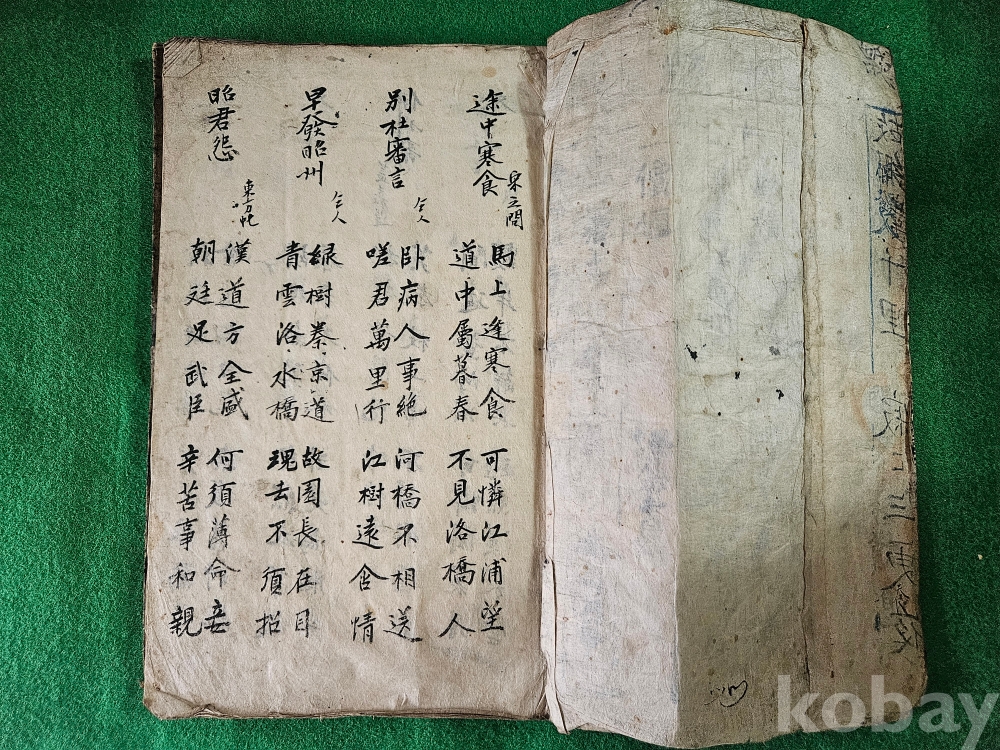 途中寒食 宋之問
馬上逢寒食 可憐江浦望
道中屬暮春 不見洛橋人
別杜審言 仝人
卧病人事絶 河橋不相送
嗟君萬里行 江樹遠含情
早發昭州 仝人
綠樹秦京道 故園長在目
青雲洛水橋 瑰去不須招
昭君怨 東方虬
漢道方全盛 何須薄命妾
朝廷足武臣 辛苦事和親
kobay